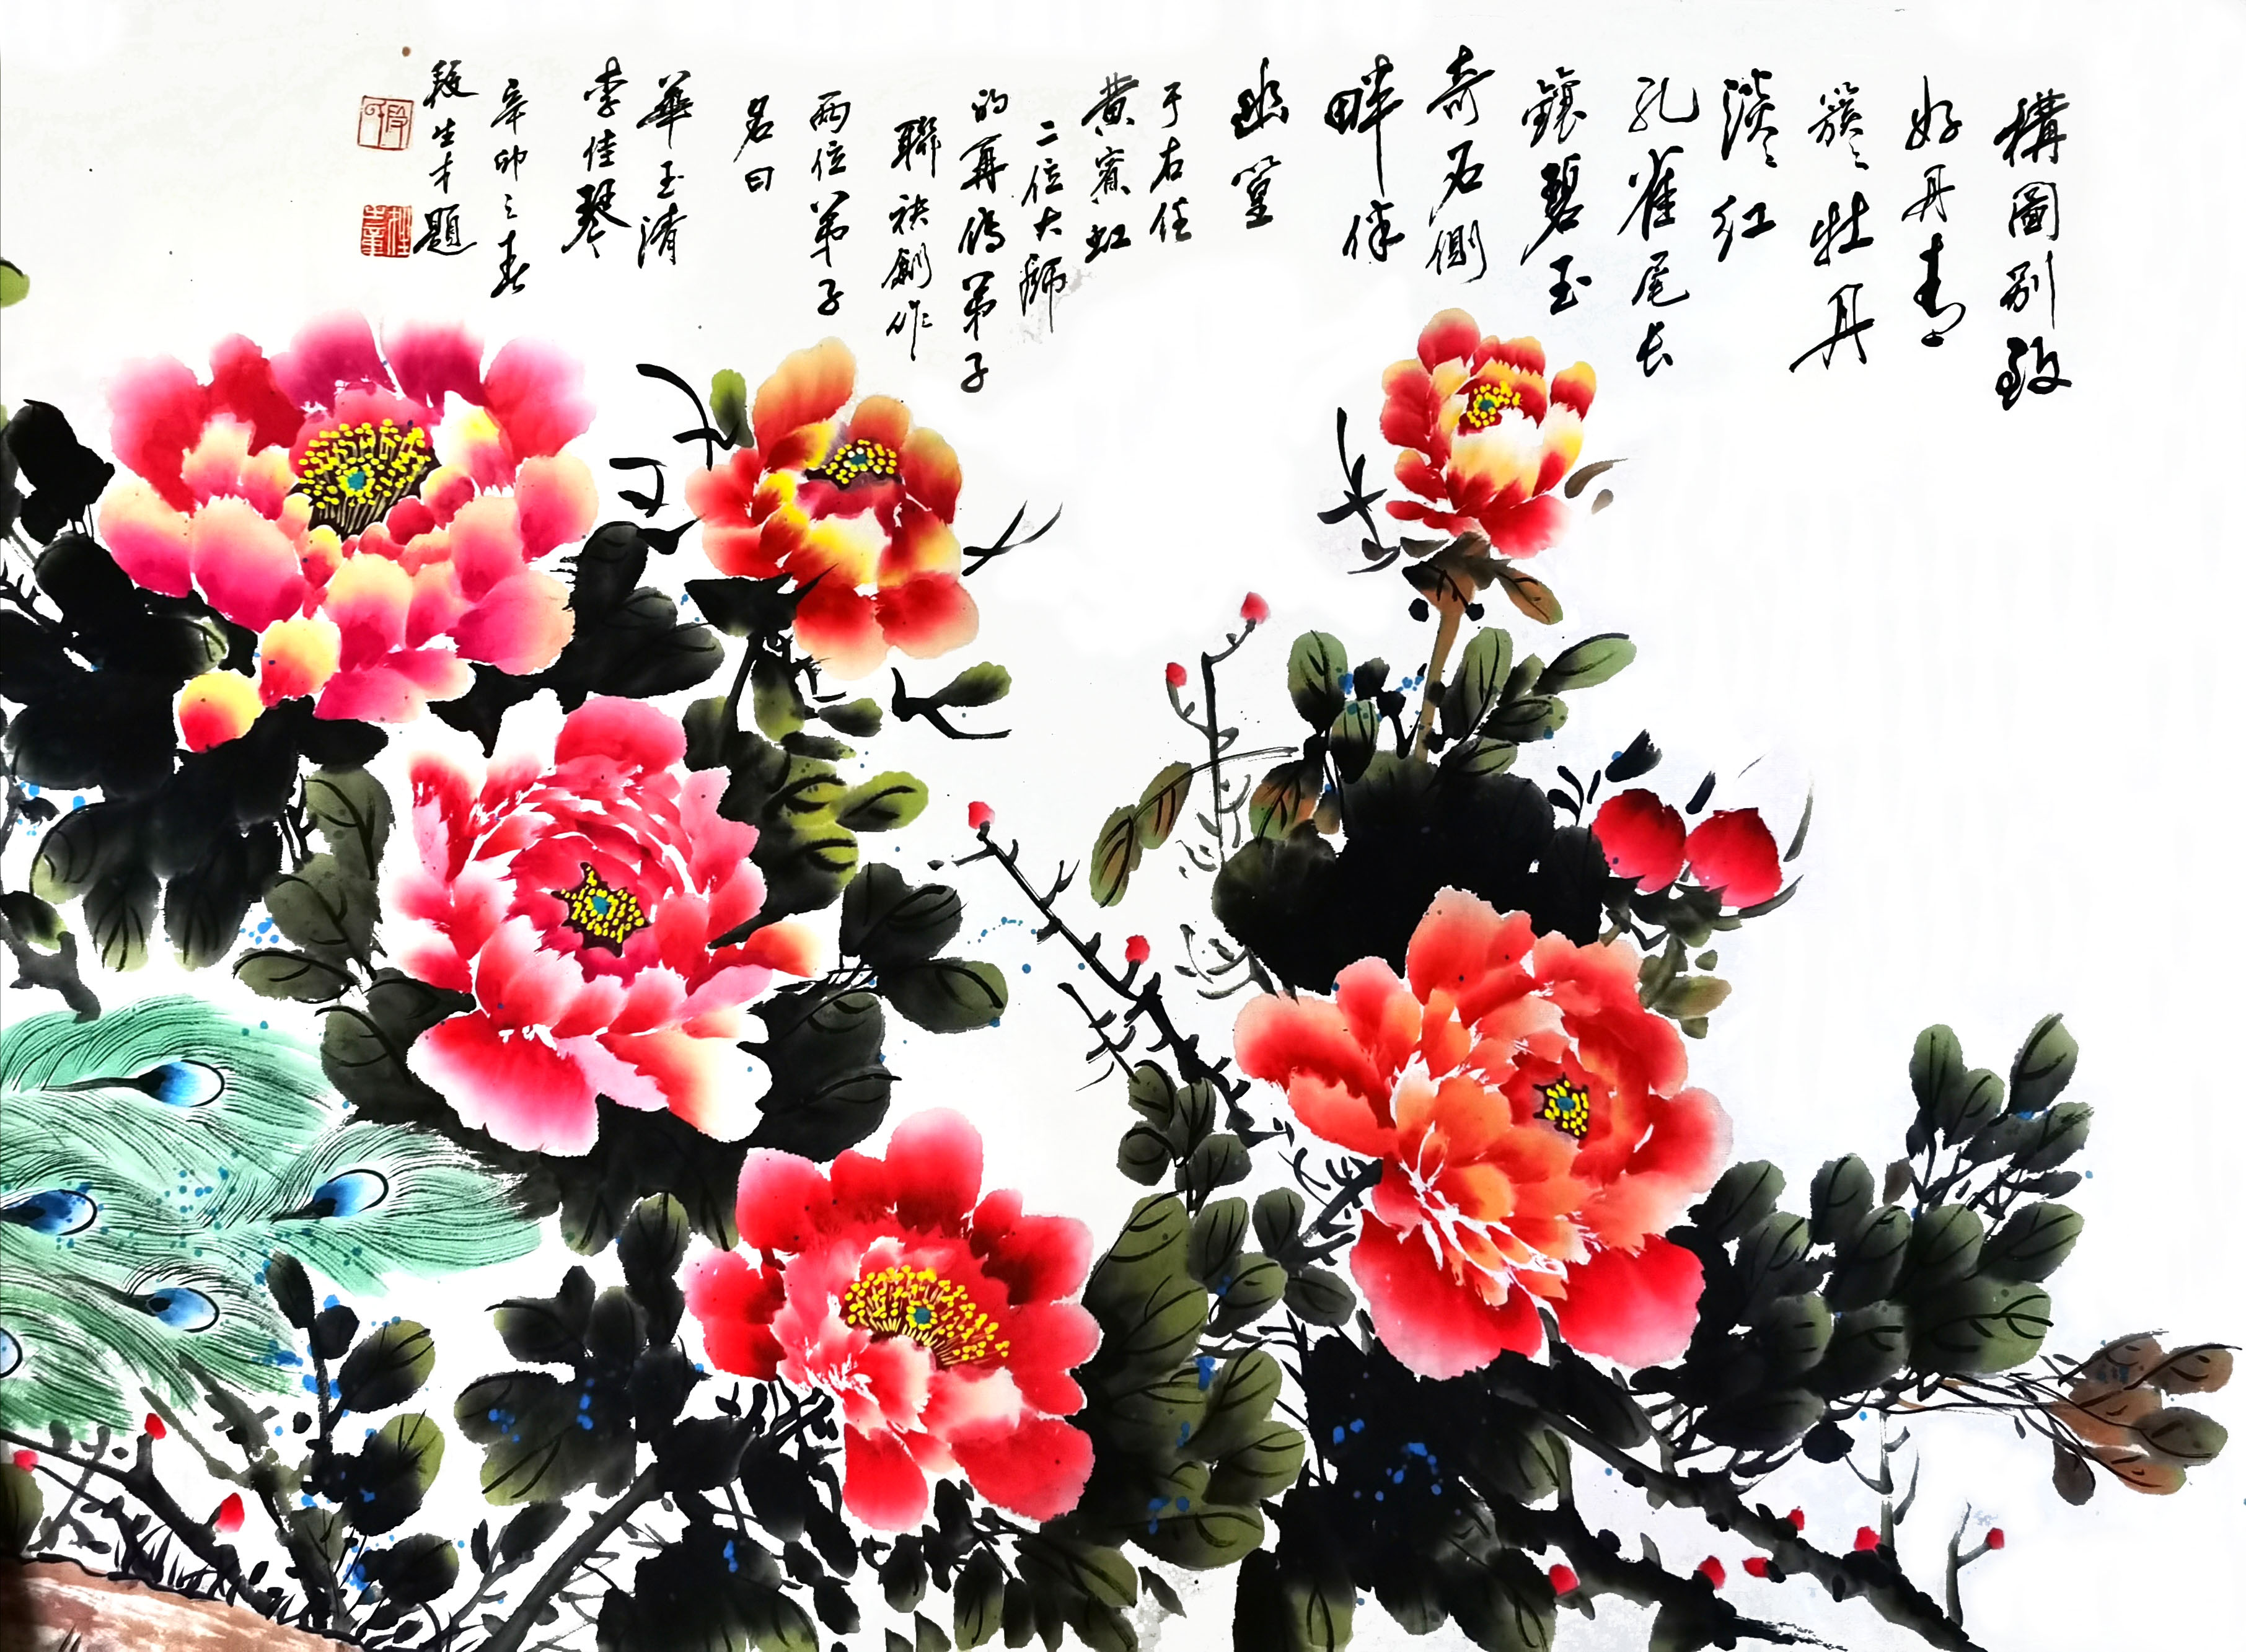 構圖别致
好丹青
簇々牡丹
淡々红
孔雀尾长
鑲碧玉
奇石側
畔伴
幽篁
于右任
黄賓虹
二位大師
的再傳弟子
聯袂創作
兩位弟子
名曰
華玉清
李佳琴
辛卯之春
段生才題